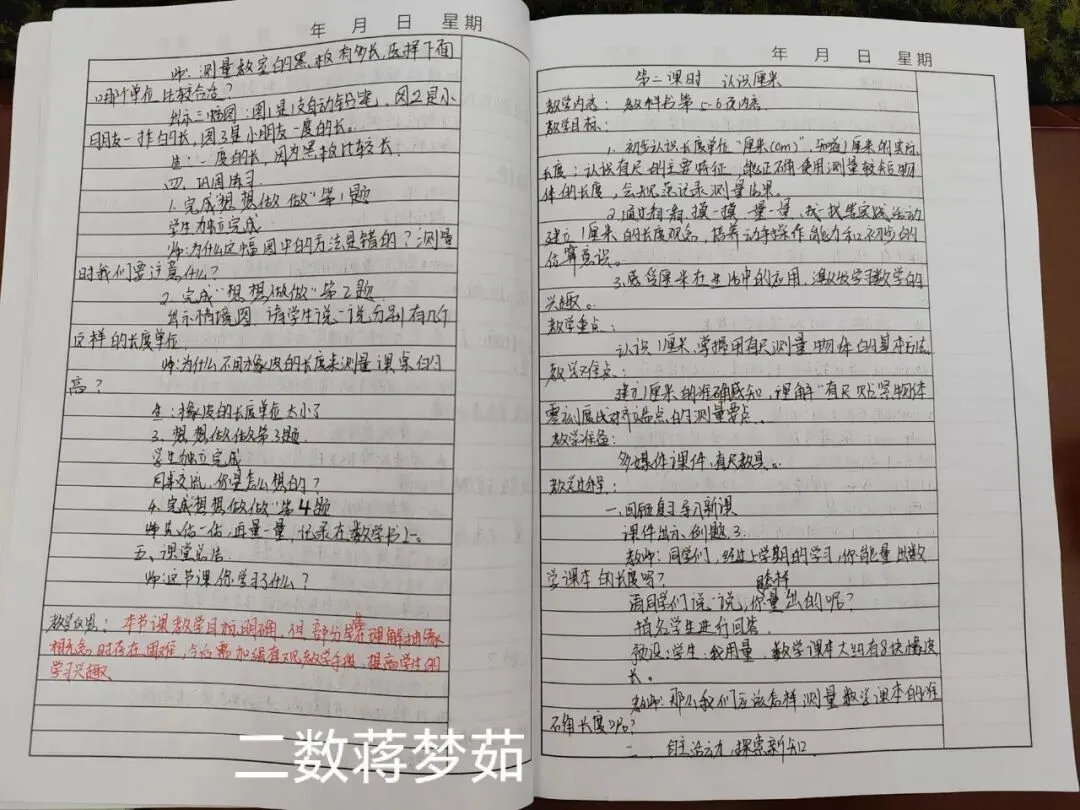 年 月 日 星期
师：测量教室的黑板有多长，选择下面
哪个单位比较合适？
出示三幅图：图1是1支自动铅笔，图2是小
朋友一拃的长，图3是小朋友一庹的长。
生：一庹的长，因为黑板比较长
四、巩固练习
1. 完成“想想做做”第1题
学生独立完成
师：为什么这幅图中的方法是错的？测量
时我们要注意什么？
2. 完成“想想做做”第2题
出示情境图，请学生说一说分别有几个
这样的长度单位
师：为什么不用橡皮的长度来测量课桌的
高？
生：橡皮的长度单位太小了
3. 想想做做第3题
学生独立完成
同桌交流，你是怎么想的？
4. 完成想想做做”第4题
师：先估一估，再量一量，记录在数学书上。
五、课堂总结
师：这节课你学习了什么？
教学反思：本节课教学目标明确，但部分学生在理解抽象
概念时存在困难，今后需加强直观教学手段，提高学生的
学习兴趣。
年 月 日 星期
第二课时 认识厘米
教学内容：教科书第5-6页内容
教学目标：
1. 初步认识长度单位“厘米(cm)”，知道1厘米的实际
长度；认识直尺的主要特征，能正确使用测量较短物
体的长度，会规范记录测量结果。
2. 通过看一看、摸一摸、量一量、找一找等实践活动
建立1厘米的长度观念，培养动手操作能力和初步的
估算意识。
3. 感受厘米在生活中的应用，激发学习数学的
兴趣。
教学重点：
认识1厘米，掌握用直尺测量物体的基本方法。
教学难点：
建立1厘米的准确感知，理解“直尺贴紧物体
零刻度线对齐端点的测量要点。
教学准备：
多媒体课件，直尺教具。
教学过程：
一、回顾复习 导入新课
课件出示例题3
教师：同学们，经过上学期的学习，你能量出数
学课本的长度吗？
请同学们说一说，你怎样量出的呢？
指名学生进行回答。
预设：学生：我用量，数学课本大约有8块橡皮
长。
教师：那么我们应该怎样测量数学课本的准
确长度呢？
二、自主活动，探索新知
二数蒋梦茹